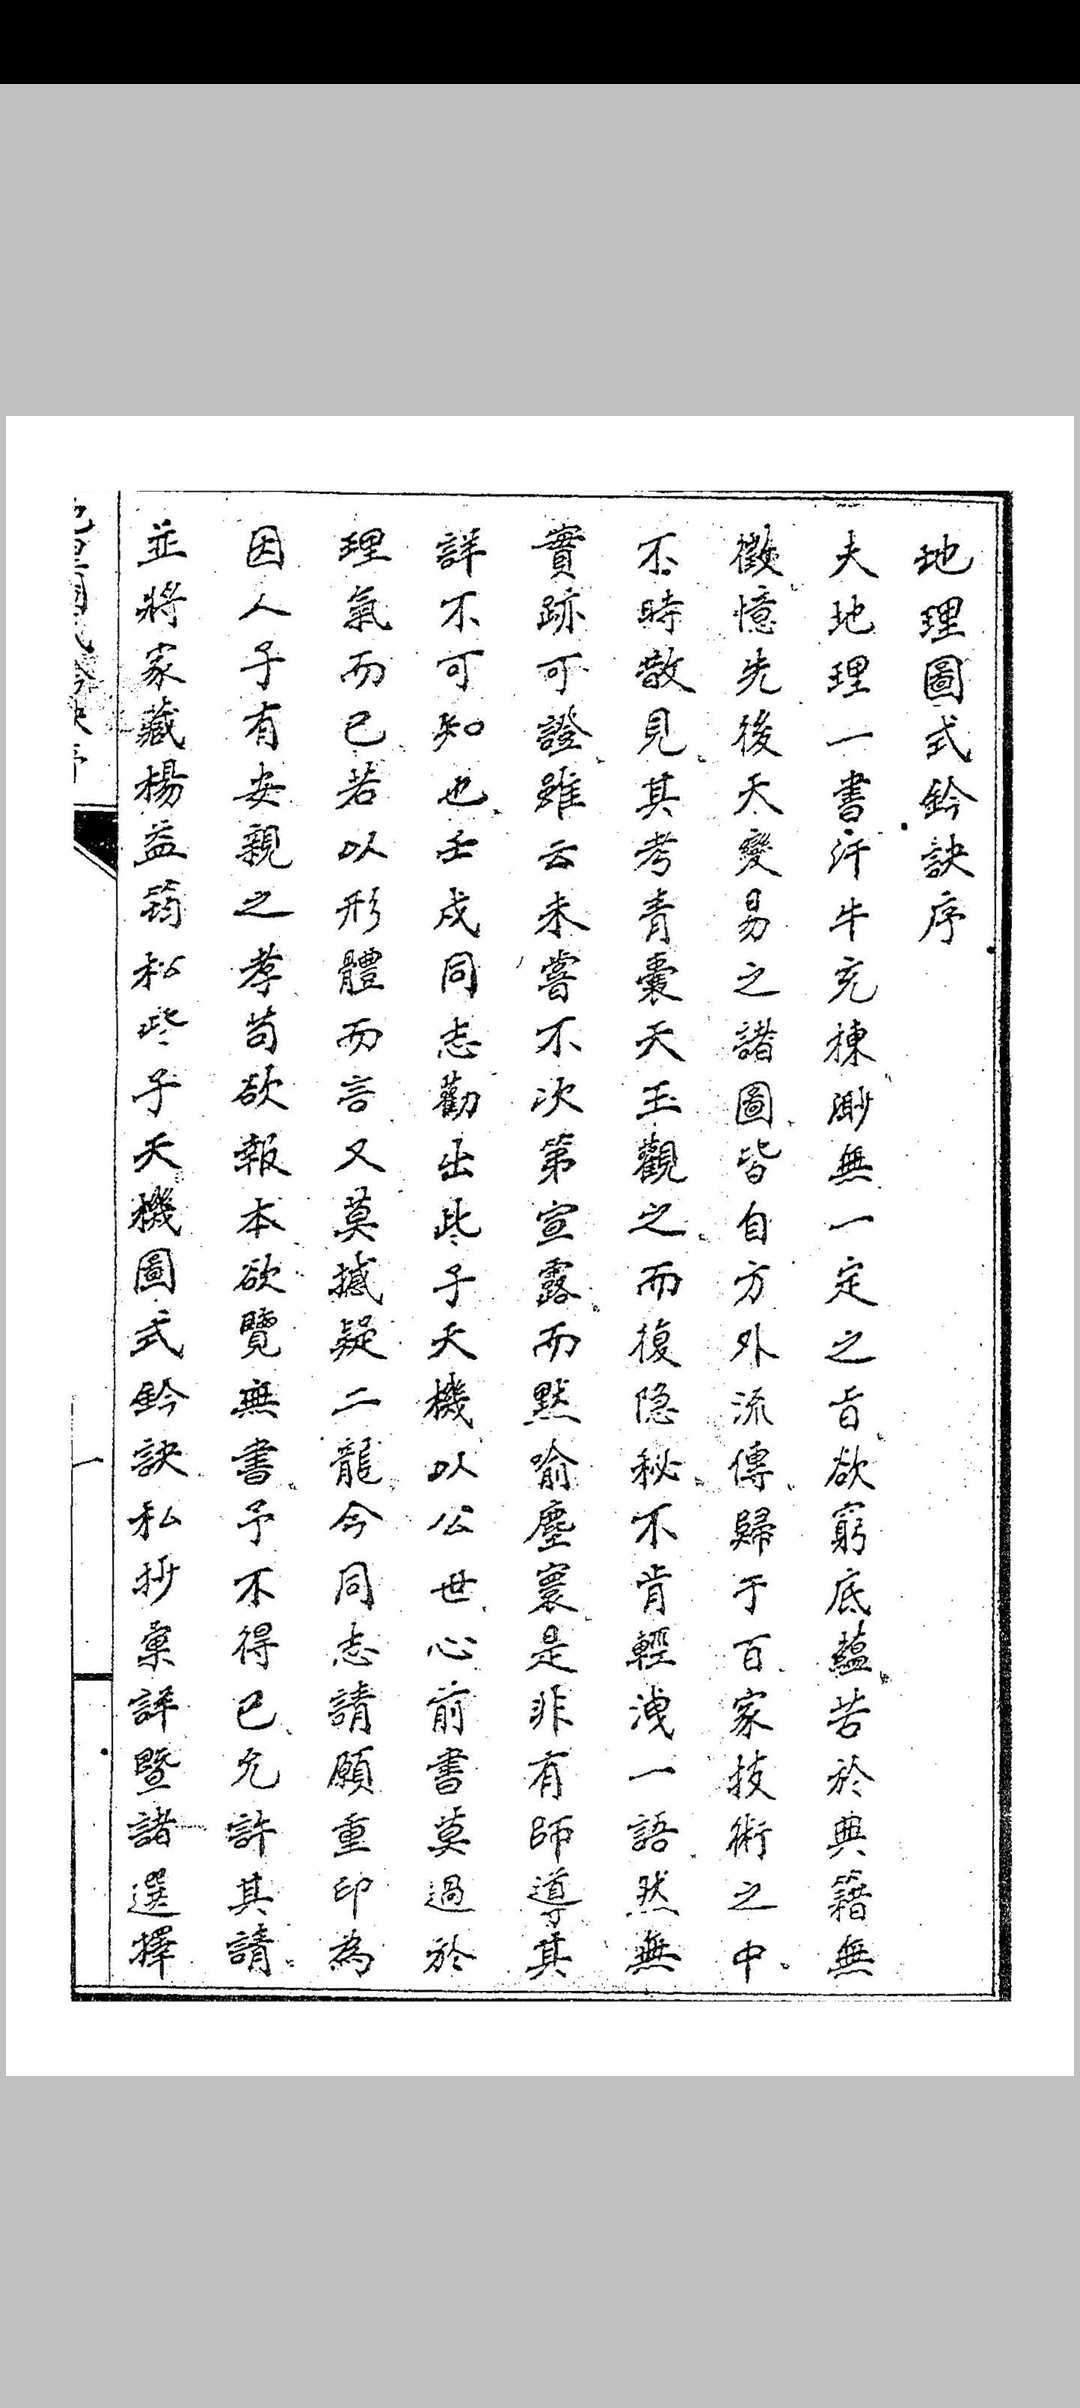 地理圖式鈐訣序
夫地理一書汗牛充棟渺無一定之旨欲窮底蘊苦於典籍無
徵憶先後天變易之諸圖皆自方外流傳歸于百家技術之中
不時散見其考青囊天玉觀之而復隐秘不肯輕洩一語然無
實跡可證雖云未嘗不次第宣露而默喻塵寰是非有師導其
詳不可知也壬戌同志勸出些子天機以公世心前書莫過於
理氣而已若以形體而言又莫撼疑二龍今同志請願重印為
因人子有安親之孝苟欲報本欲覽無書予不得已允許其請
並將家藏楊益筠松些子天機圖式鈐訣私抄彙評暨諸選擇
地理圖式鈐訣序
一